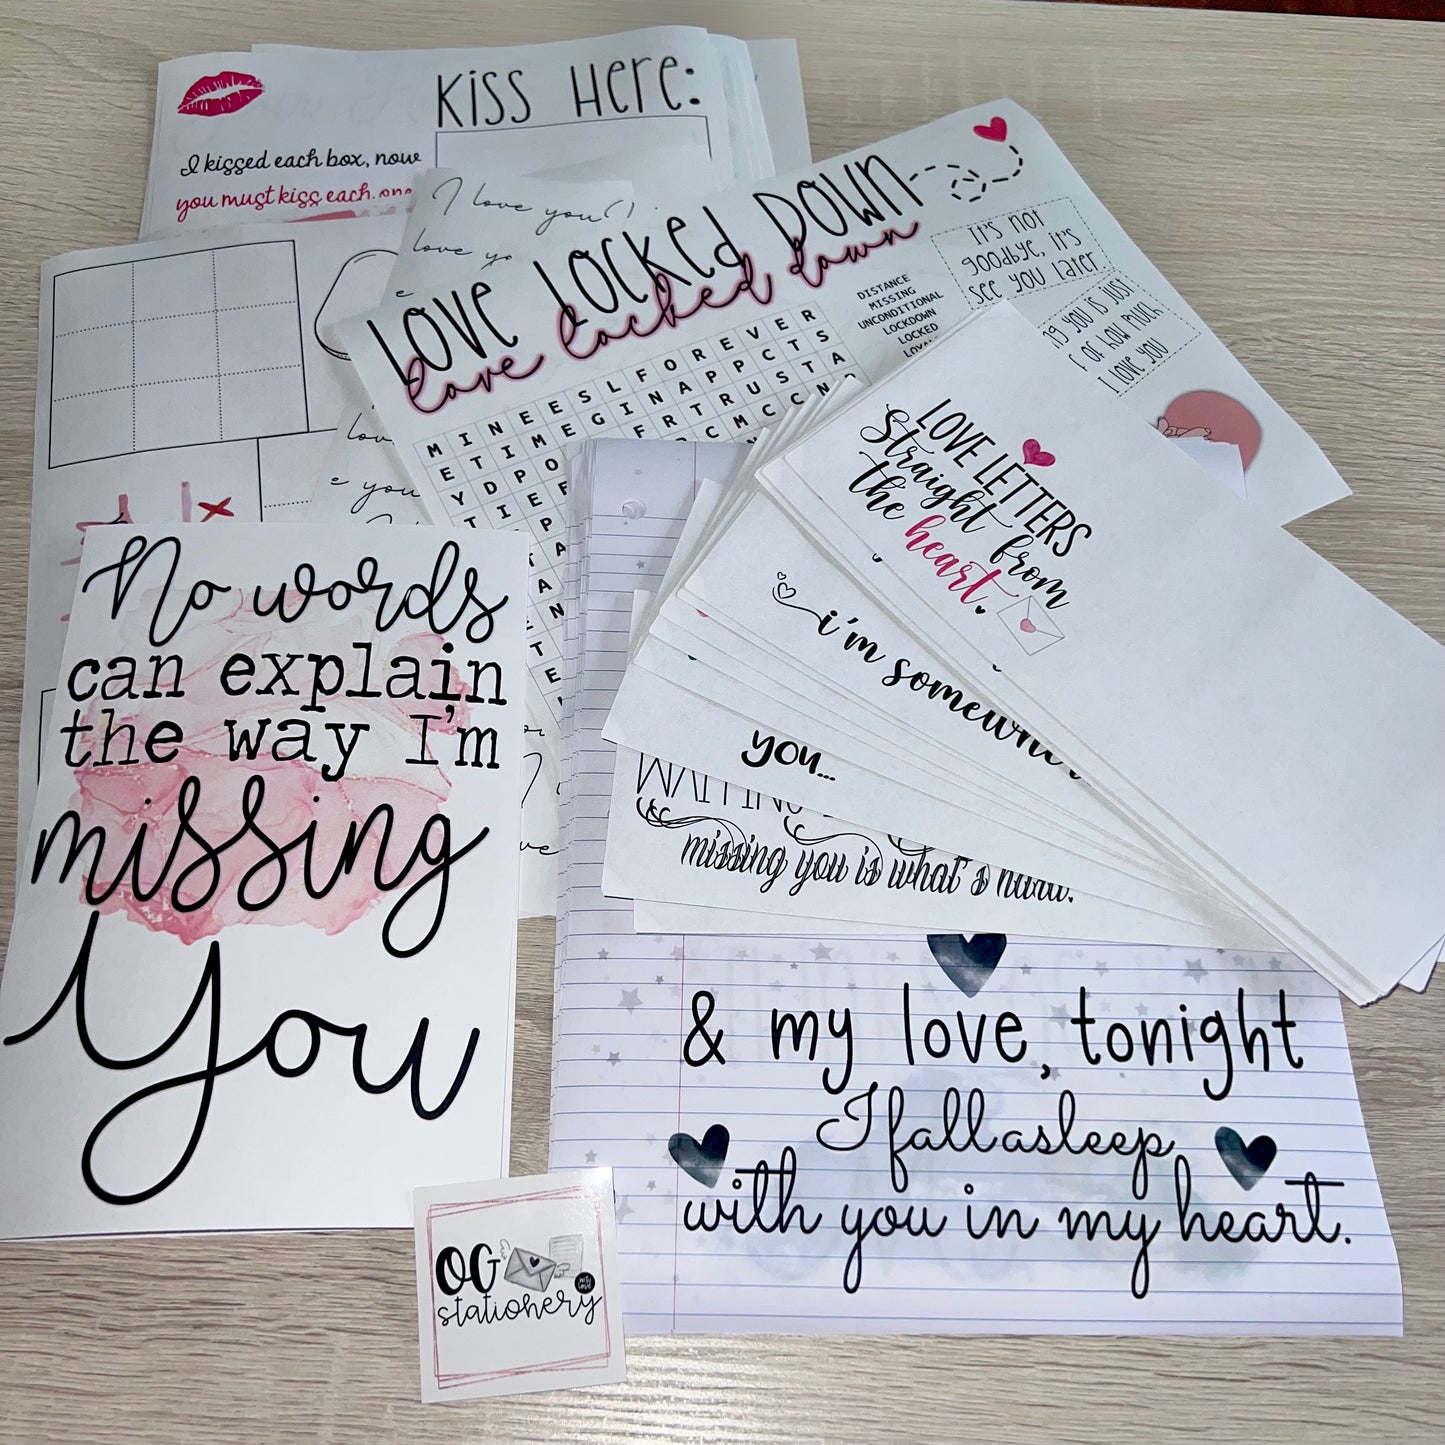 KISS HERE:
I kissed each box, now
you must kiss each one
I love you
love yo
e
LOVE LOCKED DOWN
love locked down
It's not
goodbye, it's
see you later
you is just
of how much
I love you
DISTANCE
MISSING
UNCONDITIONAL
LOCKDOWN
LOCKED
M I N E E S L F O R E V E R
E T I M E G I N A P P C T S
Y D P O
F R T R U S T A
T I E F
C M C C N
P
T A
A
N
T E
E
lov
e you
LOVE LETTERS
Straight from
the heart.
i'm somewhe
you...
WAITING
missing you is what's hard.
No words
can explain
the way I'm
missing
You
& my love, tonight
I fall asleep
with you in my heart.
OG
stationery